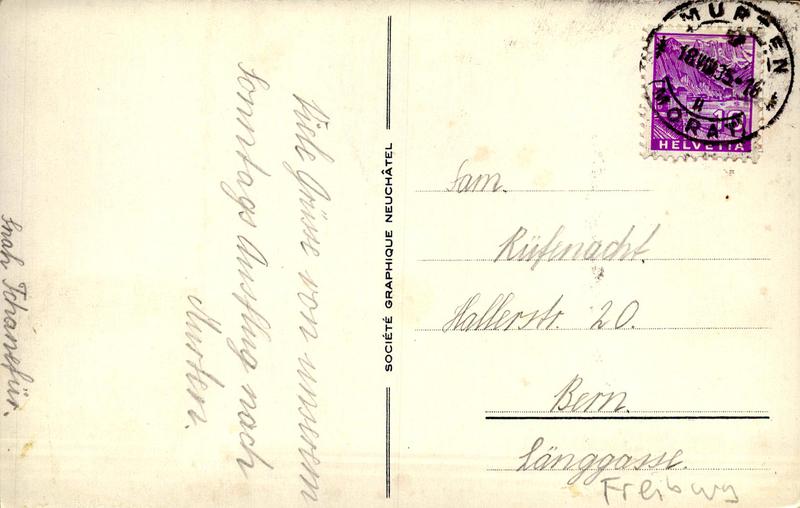 Viele Grüsse von unserem
Sonntags Ausflug nach
Murten.
SOCIÉTÉ GRAPHIQUE NEUCHÂTEL
MURTEN
18.VIII.35-16
MORAT
10
HELVETIA
Fam.
Rüfenacht
Hallerstr. 20.
Bern.
Länggasse.
Freiburg